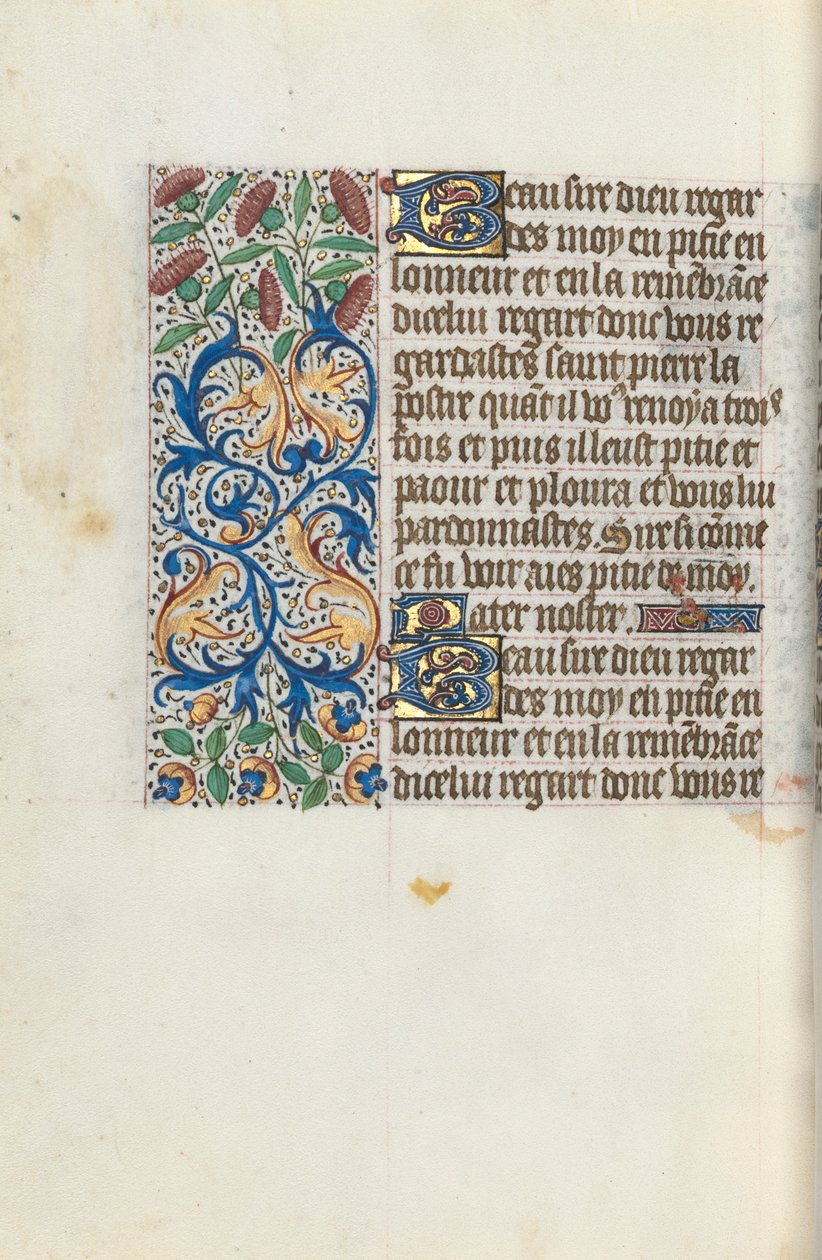 Beau sire dieu regar
des moy en pitie en
lonneur et en la remēbrāce
dicelui regart donc vous re
gardastes saint pierre la
postre quāt il voꝰ renoya trois
fois et puis il leust pitie et
paour et ploura et vous lui
pardonnastes. Sire si cōme
ce fu voir aies pitie de moy.
Pater noster.
Beau sire dieu regar
des moy en pitie en
lonneur et en la remēbrāce
dicelui regart donc vous re